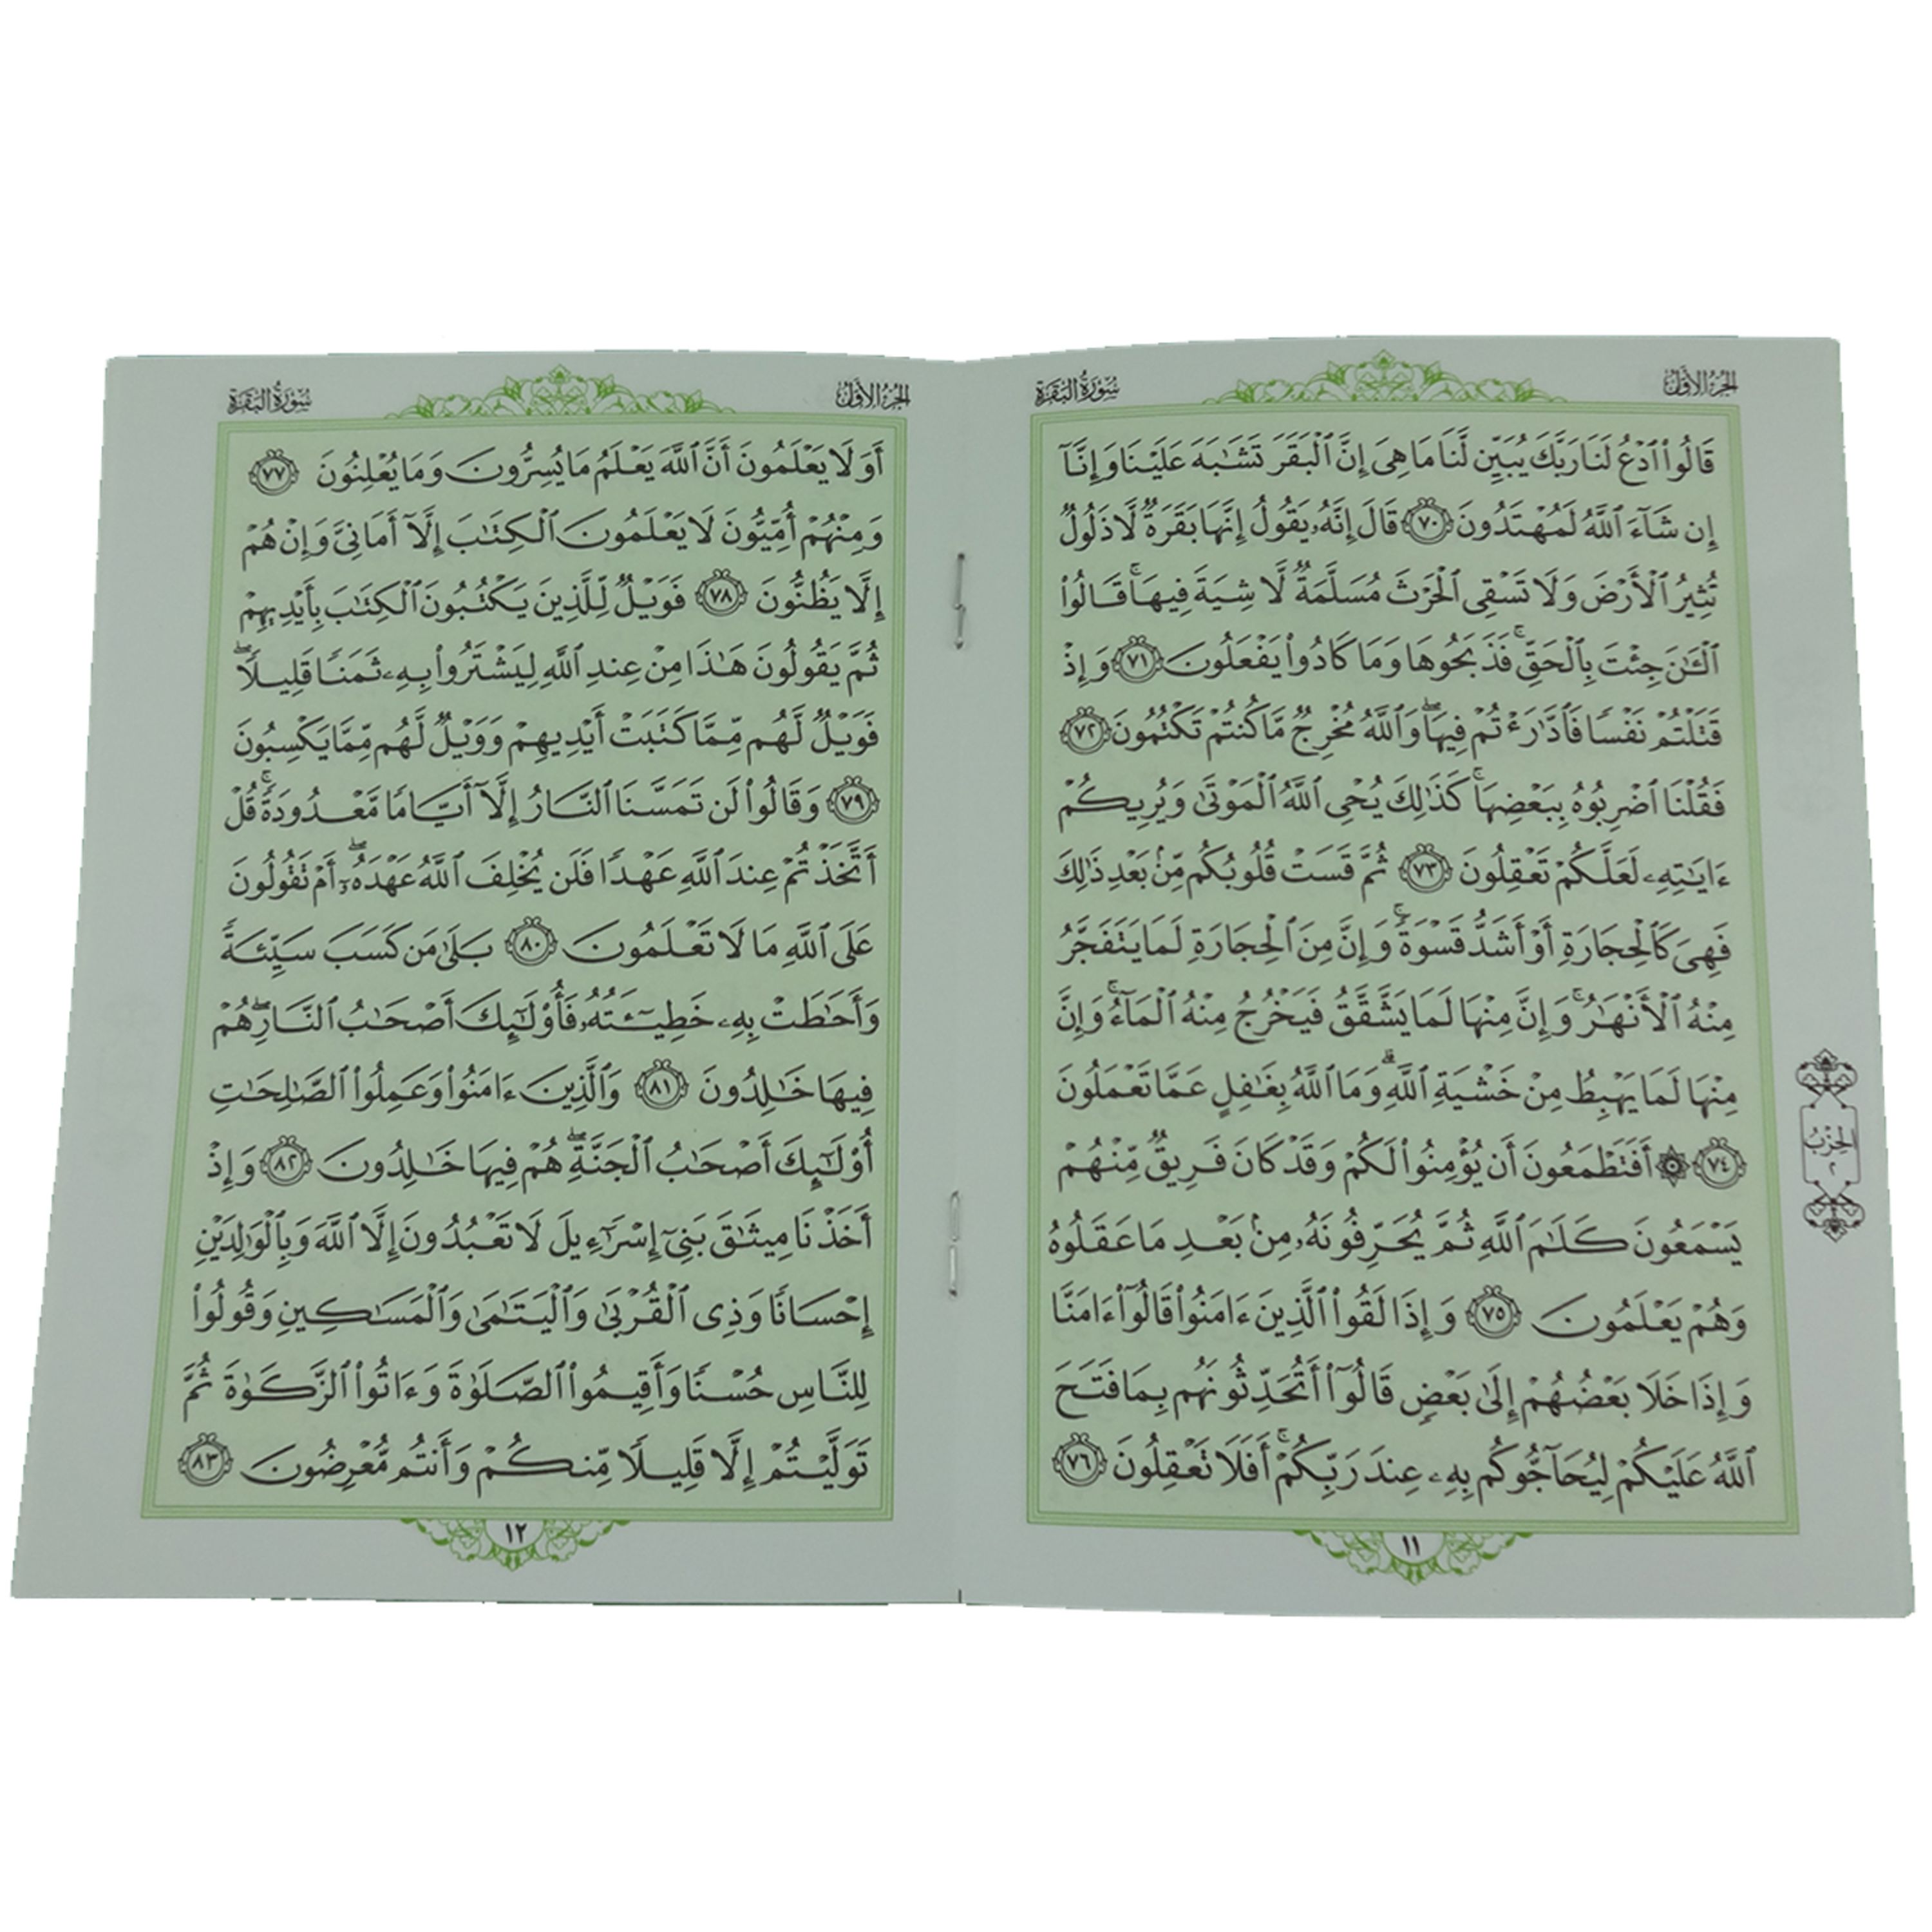 الجزء الأول
سورة البقرة
قَالُوا۟ ٱدْعُ لَنَا رَبَّكَ يُبَيِّن لَّنَا مَا هِىَ إِنَّ ٱلْبَقَرَ تَشَـٰبَهَ عَلَيْنَا وَإِنَّآ
إِن شَآءَ ٱللَّهُ لَمُهْتَدُونَ ٧٠ قَالَ إِنَّهُۥ يَقُولُ إِنَّهَا بَقَرَةٌ لَّا ذَلُولٌ
تُثِيرُ ٱلْأَرْضَ وَلَا تَسْقِى ٱلْحَرْثَ مُسَلَّمَةٌ لَّا شِيَةَ فِيهَا ۚ قَالُوا۟
ٱلْـَٔـٰنَ جِئْتَ بِٱلْحَقِّ ۚ فَذَبَحُوهَا وَمَا كَادُوا۟ يَفْعَلُونَ ٧١ وَإِذْ
قَتَلْتُمْ نَفْسًا فَٱدَّٰرَْٰٔتُمْ فِيهَا ۖ وَٱللَّهُ مُخْرِجٌ مَّا كُنتُمْ تَكْتُمُونَ ٧٢
فَقُلْنَا ٱضْرِبُوهُ بِبَعْضِهَا ۚ كَذَٰلِكَ يُحْىِ ٱللَّهُ ٱلْمَوْتَىٰ وَيُرِيكُمْ
ءَايَـٰتِهِۦ لَعَلَّكُمْ تَعْقِلُونَ ٧٣ ثُمَّ قَسَتْ قُلُوبُكُم مِّنۢ بَعْدِ ذَٰلِكَ
فَهِىَ كَٱلْحِجَارَةِ أَوْ أَشَدُّ قَسْوَةً ۚ وَإِنَّ مِنَ ٱلْحِجَارَةِ لَمَا يَتَفَجَّرُ
مِنْهُ ٱلْأَنْهَـٰرُ ۚ وَإِنَّ مِنْهَا لَمَا يَشَّقَّقُ فَيَخْرُجُ مِنْهُ ٱلْمَآءُ ۚ وَإِنَّ
مِنْهَا لَمَا يَهْبِطُ مِنْ خَشْيَةِ ٱللَّهِ ۗ وَمَا ٱللَّهُ بِغَـٰفِلٍ عَمَّا تَعْمَلُونَ
٧٤ ۞ أَفَتَطْمَعُونَ أَن يُؤْمِنُوا۟ لَكُمْ وَقَدْ كَانَ فَرِيقٌ مِّنْهُمْ
يَسْمَعُونَ كَلَـٰمَ ٱللَّهِ ثُمَّ يُحَرِّفُونَهُۥ مِنۢ بَعْدِ مَا عَقَلُوهُ
وَهُمْ يَعْلَمُونَ ٧٥ وَإِذَا لَقُوا۟ ٱلَّذِينَ ءَامَنُوا۟ قَالُوٓا۟ ءَامَنَّا
وَإِذَا خَلَا بَعْضُهُمْ إِلَىٰ بَعْضٍ قَالُوٓا۟ أَتُحَدِّثُونَهُم بِمَا فَتَحَ
ٱللَّهُ عَلَيْكُمْ لِيُحَآجُّوكُم بِهِۦ عِندَ رَبِّكُمْ ۚ أَفَلَا تَعْقِلُونَ ٧٦
١١
الحزب
٢
الجزء الأول
سورة البقرة
أَوَلَا يَعْلَمُونَ أَنَّ ٱللَّهَ يَعْلَمُ مَا يُسِرُّونَ وَمَا يُعْلِنُونَ ٧٧
وَمِنْهُمْ أُمِّيُّونَ لَا يَعْلَمُونَ ٱلْكِتَـٰبَ إِلَّآ أَمَانِىَّ وَإِنْ هُمْ
إِلَّا يَظُنُّونَ ٧٨ فَوَيْلٌ لِّلَّذِينَ يَكْتُبُونَ ٱلْكِتَـٰبَ بِأَيْدِيهِمْ
ثُمَّ يَقُولُونَ هَـٰذَا مِنْ عِندِ ٱللَّهِ لِيَشْتَرُوا۟ بِهِۦ ثَمَنًا قَلِيلًا ۖ
فَوَيْلٌ لَّهُم مِّمَّا كَتَبَتْ أَيْدِيهِمْ وَوَيْلٌ لَّهُم مِّمَّا يَكْسِبُونَ
٧٩ وَقَالُوا۟ لَن تَمَسَّنَا ٱلنَّارُ إِلَّآ أَيَّامًا مَّعْدُودَةً ۚ قُلْ
أَتَّخَذْتُمْ عِندَ ٱللَّهِ عَهْدًا فَلَن يُخْلِفَ ٱللَّهُ عَهْدَهُۥٓ ۖ أَمْ تَقُولُونَ
عَلَى ٱللَّهِ مَا لَا تَعْلَمُونَ ٨٠ بَلَىٰ مَن كَسَبَ سَيِّئَةً
وَأَحَـٰطَتْ بِهِۦ خَطِيٓـَٔتُهُۥ فَأُو۟لَـٰٓئِكَ أَصْحَـٰبُ ٱلنَّارِ ۖ هُمْ
فِيهَا خَـٰلِدُونَ ٨١ وَٱلَّذِينَ ءَامَنُوا۟ وَعَمِلُوا۟ ٱلصَّـٰلِحَـٰتِ
أُو۟لَـٰٓئِكَ أَصْحَـٰبُ ٱلْجَنَّةِ ۖ هُمْ فِيهَا خَـٰلِدُونَ ٨٢ وَإِذْ
أَخَذْنَا مِيثَـٰقَ بَنِىٓ إِسْرَٰٓءِيلَ لَا تَعْبُدُونَ إِلَّا ٱللَّهَ وَبِٱلْوَٰلِدَيْنِ
إِحْسَانًا وَذِى ٱلْقُرْبَىٰ وَٱلْيَتَـٰمَىٰ وَٱلْمَسَـٰكِينِ وَقُولُوا۟
لِلنَّاسِ حُسْنًا وَأَقِيمُوا۟ ٱلصَّلَوٰةَ وَءَاتُوا۟ ٱلزَّكَوٰةَ ثُمَّ
تَوَلَّيْتُمْ إِلَّا قَلِيلًا مِّنكُمْ وَأَنتُم مُّعْرِضُونَ ٨٣
١٢